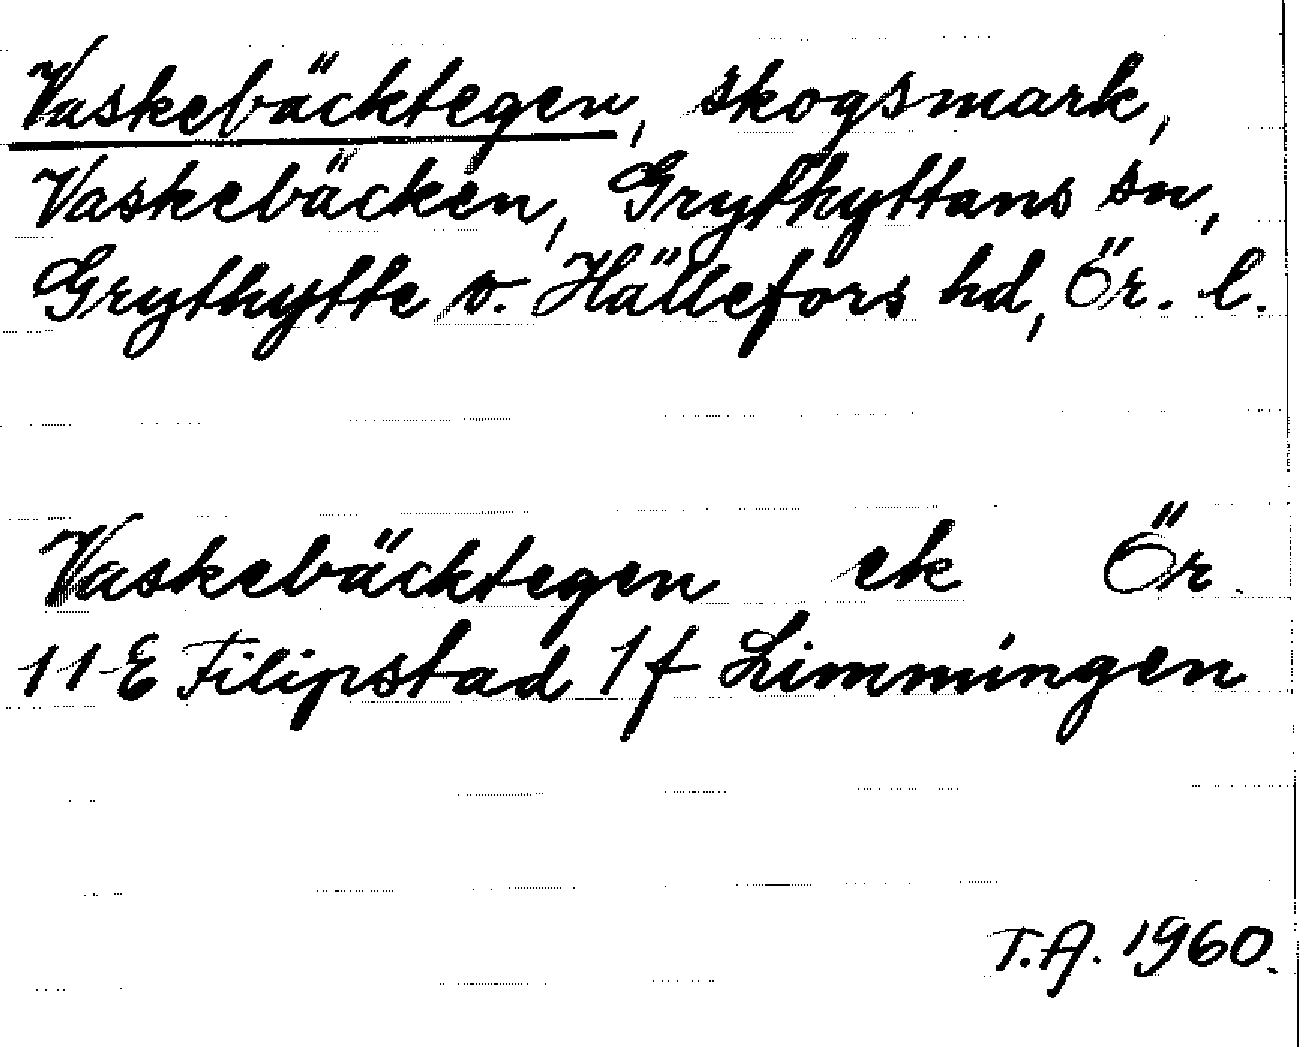 Vaskebäcktegen, skogsmark,
Vaskebäcken, Grythyttans sn,
Grythytte o. Hällefors hd, Ör. l.
Vaskebäcktegen ek Ör.
11 E Filipstad 1 f Limmingen
T.A. 1960.